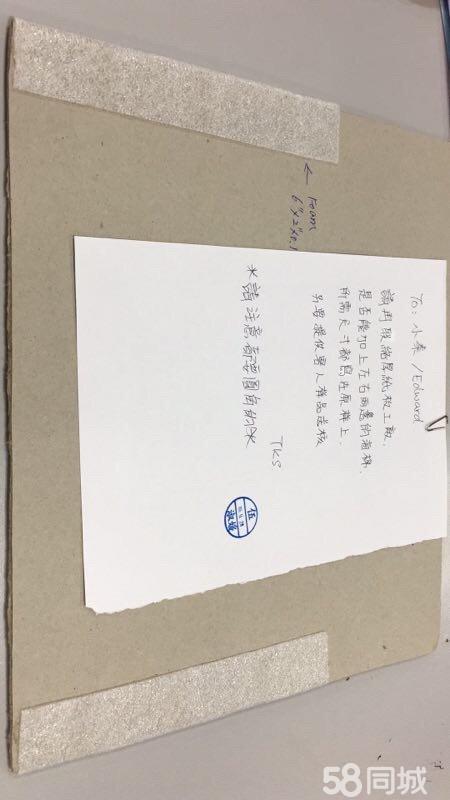 ← Foam
6"x2"x0.
To: 小秦 /Edward
請再聯絡厚紙板工廠,
是否能加上左右兩邊的海棉,
所需尺寸都寫在原樣上.
另要提供客人樣品送核
TKS
※請注意,需要圓角的
伍
58同城